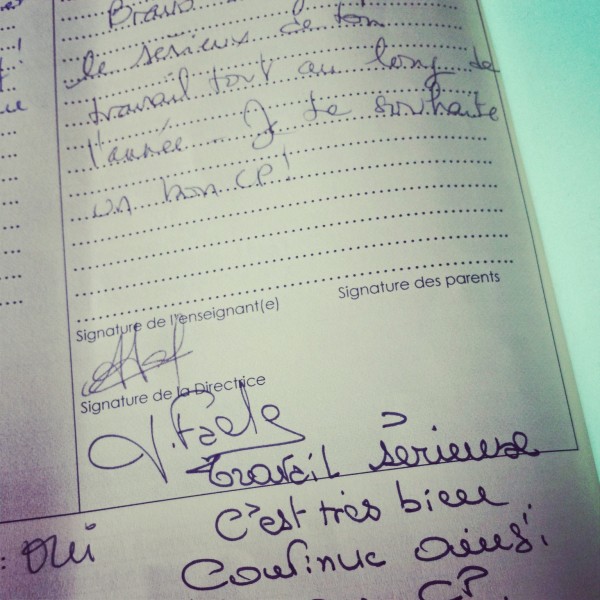 Bravo
le sérieux de ton
travail tout au long de
l'année. Je te souhaite
un bon CP!
Signature de l'enseignant(e)
Signature des parents
Signature de la Directrice
Travail Sérieuse
C'est très bien
Continue ainsi.
: oui
CP.